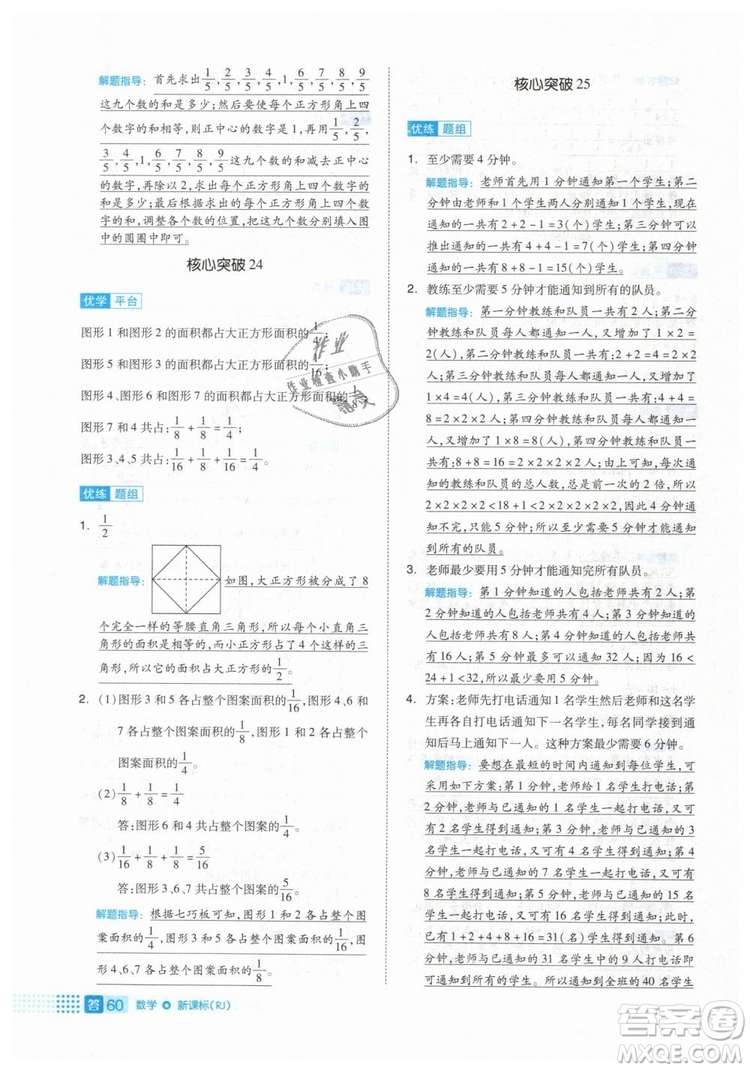 解题指导:首先求出1/5,2/5,3/5,4/5,1,6/5,7/5,8/5,9/5
这九个数的和是多少;然后要使每个正方形角上四
个数字的和相等,则正中心的数字是1,再用1/5,2/5,
3/5,4/5,1,6/5,7/5,8/5,9/5这九个数的和减去正中心
的数字,再除以2,求出每个正方形角上四个数字的
和;最后根据求出的每个正方形角上的四个数字的
和,调整各个数的位置,把这九个数分别填入图
中的圆圈中即可。
核心突破24
优学 平台
图形1和图形2的面积都占大正方形面积的1/4;
图形5和图形3的面积都占大正方形面积的
图形4、图形6和图形7的面积都占大正方形面积的1/8。
图形7和4共占:1/8+1/8=1/4;
图形3、4、5共占:1/16+1/8+1/16=1/4。
优练 题组
1. 1/2
解题指导: 如图,大正方形被分成了8
个完全一样的等腰直角三角形,所以每个小直角三
角形的面积是大正方形的1/8。而小正方形占4个三角
形,所以它的面积是大正方形面积的1/2。
2. (1)图形3和5各占整个图案面积的1/16,图形4、6和
7各占整个图案面积的1/8。
(2)1/8+1/8=1/4
答:图形6和4共占整个图案的1/4。
(3)1/16+1/8+1/8=5/16
答:图形3、6、7共占整个图案的5/16。
解题指导:根据七巧板可知,图形1、2各占整个图
案面积的1/4,图形3、5各占整个图案面积的1/16,图形
4、6、7各占整个图案面积的1/8。
答60 数学 新课标(RJ)
核心突破25
优练 题组
1. 至少需要4分钟。
解题指导:老师首先用1分钟通知第一个学生;第二
分钟由老师和1个学生两人分别通知1个学生,现在
通知的一共有2+2-1=3(个)学生;以此类推,可以
推出通知的一共有4+4-1=7(个)学生;第四分钟通
知的一共有8+8-1=15(个)学生。
2. 教练至少需要用5分钟才能通知到所有的队员。
解题指导:第一分钟教练和队员每人都通知一人,共
2(人)。第二分钟教练和队员每人都通知一人,又增
加了1×2=2(人),共有2+2=2×2=4(人)。第三分
钟教练和队员每人都通知一人,又增加了1×4=4
(人),共有4+4=2×2×2=8(人)。第四分钟教练和
队员每人都通知一人,又增加了1×8=8(人),共有
8+8=2×2×2×2=16(人)…可以发现:教练和队员
的总人数,后一分钟是前一分钟的2倍,所以
2×2×2×2<24+1<2×2×2×2×2,4分钟通
知不完,只能5分钟。所以至少需要5分钟才能通知
到所有的队员。
3. 老师最少要用5分钟才能通知完所有队员。
解题指导:第1分钟知道的人包括老师共有2人;第
2分钟知道的人包括老师共有4人;第3分钟知道的
人包括老师共有8人;第4分钟知道的人包括老师共
有16人;第5分钟知道的人包括老师共有32人;16<
24+1<32。所以最少要用5分钟。
4. 方案:老师先打电话通知1名学生然后老师和这名学
生再各自打电话通知下一名学生,每名同学得到通知
后马上通知下一人。这种方案最少需要6分钟。
解题指导:要想在最短的时间内通知到每位学生,可
采用如下方案:第1分钟,老师给1名学生打电话,有
1名学生得到通知;第2分钟,老师与已通知的1名学
生一起打电话,有2名学生得到通知;第3分钟,老师
与已通知的3名学生一起打电话,有4名学生得到通
知;第4分钟,老师与已通知的7名学生一起打电话,
有8名学生得到通知;第5分钟,老师与已通知的15名
学生一起打电话,有16名学生得到通知;此时,已
有1+2+4+8+16=31(名)学生得到通知。第6
分钟,老师与已通知的学生一起打电话,可以通知完
剩下的所有学生。所以通知到全班的40名学生至少
需要6分钟。
作业
作业检查小助手
答案圈
MXQE.COM